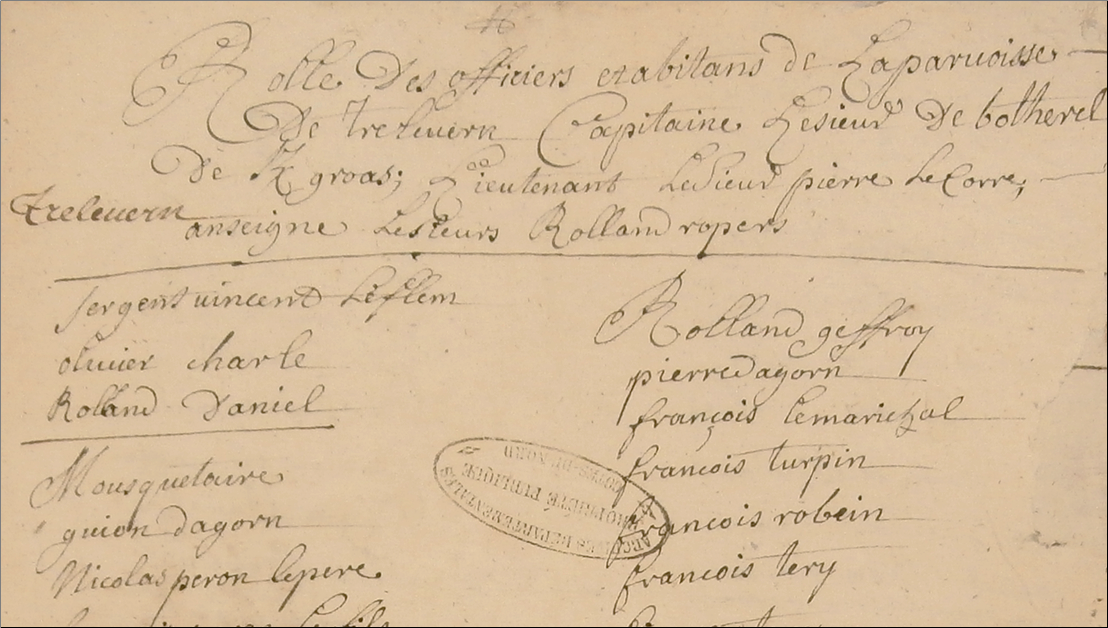 Rolle Des officiers etabitans de Laparuoisse
De treleuern Capitaine Lesieur De botherel
De K groas; Lieutenant LeSieur pierre LeCorre,
Treleuern
anseigne Lesieurs Rolland ropers
sergent uincent Leflem
oliuier charle
Rolland Daniel
Mousquetaire
guion dagorn
Nicolas peron lepere
Rolland geffroy
pierre dagorn
françois lemarichal
francois turpin
francois robein
francois tery
ARCHIVES DEPARTEMENTALES
PROPRIÉTÉ PUBLIQUE
CÔTES-DU-NORD